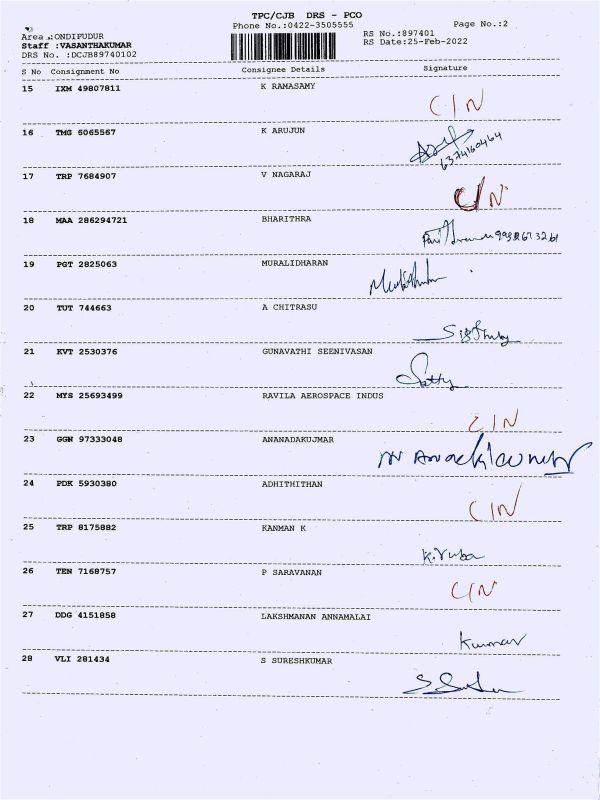 TPC/CJB DRS - PCO
Phone No.:0422-3505555 Page No.:2
Area :ONDIPUDUR RS No.:897401
Staff :VASANTHAKUMAR RS Date:25-Feb-2022
DRS No. :DCJB89740102
S No Consignment No Consignee Details Signature
15 IXM 49807811 K RAMASAMY
C/N
16 TMG 6065567 K ARUJUN
6374160464
17 TRP 7684907 V NAGARAJ
C/N
18 MAA 286294721 BHARITHRA
19 PGT 2825063 MURALIDHARAN
20 TUT 744663 A CHITRASU
21 KVT 2530376 GUNAVATHI SEENIVASAN
Sathy
22 MYS 25693499 RAVILA AEROSPACE INDUS
C/N
23 GGN 97333048 ANANADAKUJMAR
24 PDK 5930380 ADHITHITHAN
C/N
25 TRP 8175882 KANMAN K
K. Ruba
26 TEN 7168757 P SARAVANAN
C/N
27 DDG 4151858 LAKSHMANAN ANNAMALAI
Kumar
28 VLI 281434 S SURESHKUMAR